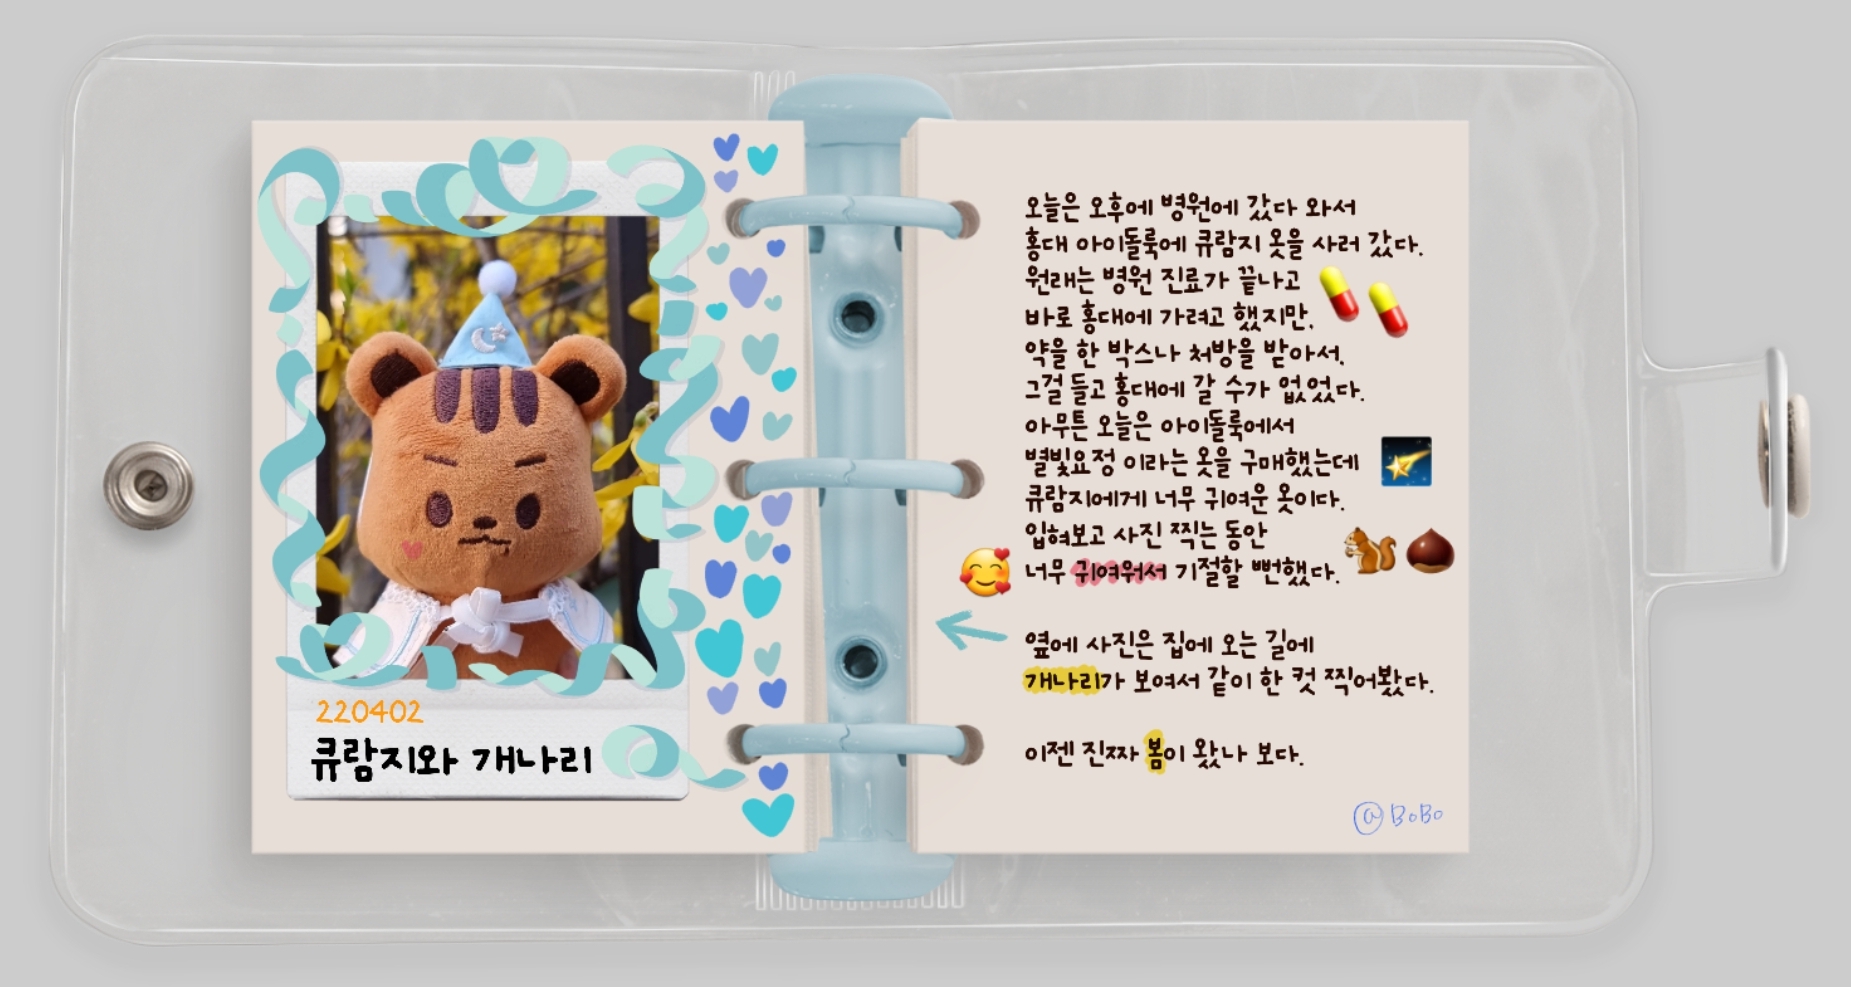 220402
큐람지와 개나리
오늘은 오후에 병원에 갔다 와서
홍대 아이돌룩에 큐람지 옷을 사러 갔다.
원래는 병원 진료가 끝나고
바로 홍대에 가려고 했지만,
약을 한 박스나 처방을 받아서,
그걸 들고 홍대에 갈 수가 없었다.
아무튼 오늘은 아이돌룩에서
별빛요정 이라는 옷을 구매했는데
큐람지에게 너무 귀여운 옷이다.
입혀보고 사진 찍는 동안
너무 귀여워서 기절할 뻔했다.
옆에 사진은 집에 오는 길에
개나리가 보여서 같이 한 컷 찍어봤다.
이젠 진짜 봄이 왔나 보다.
@BoBo